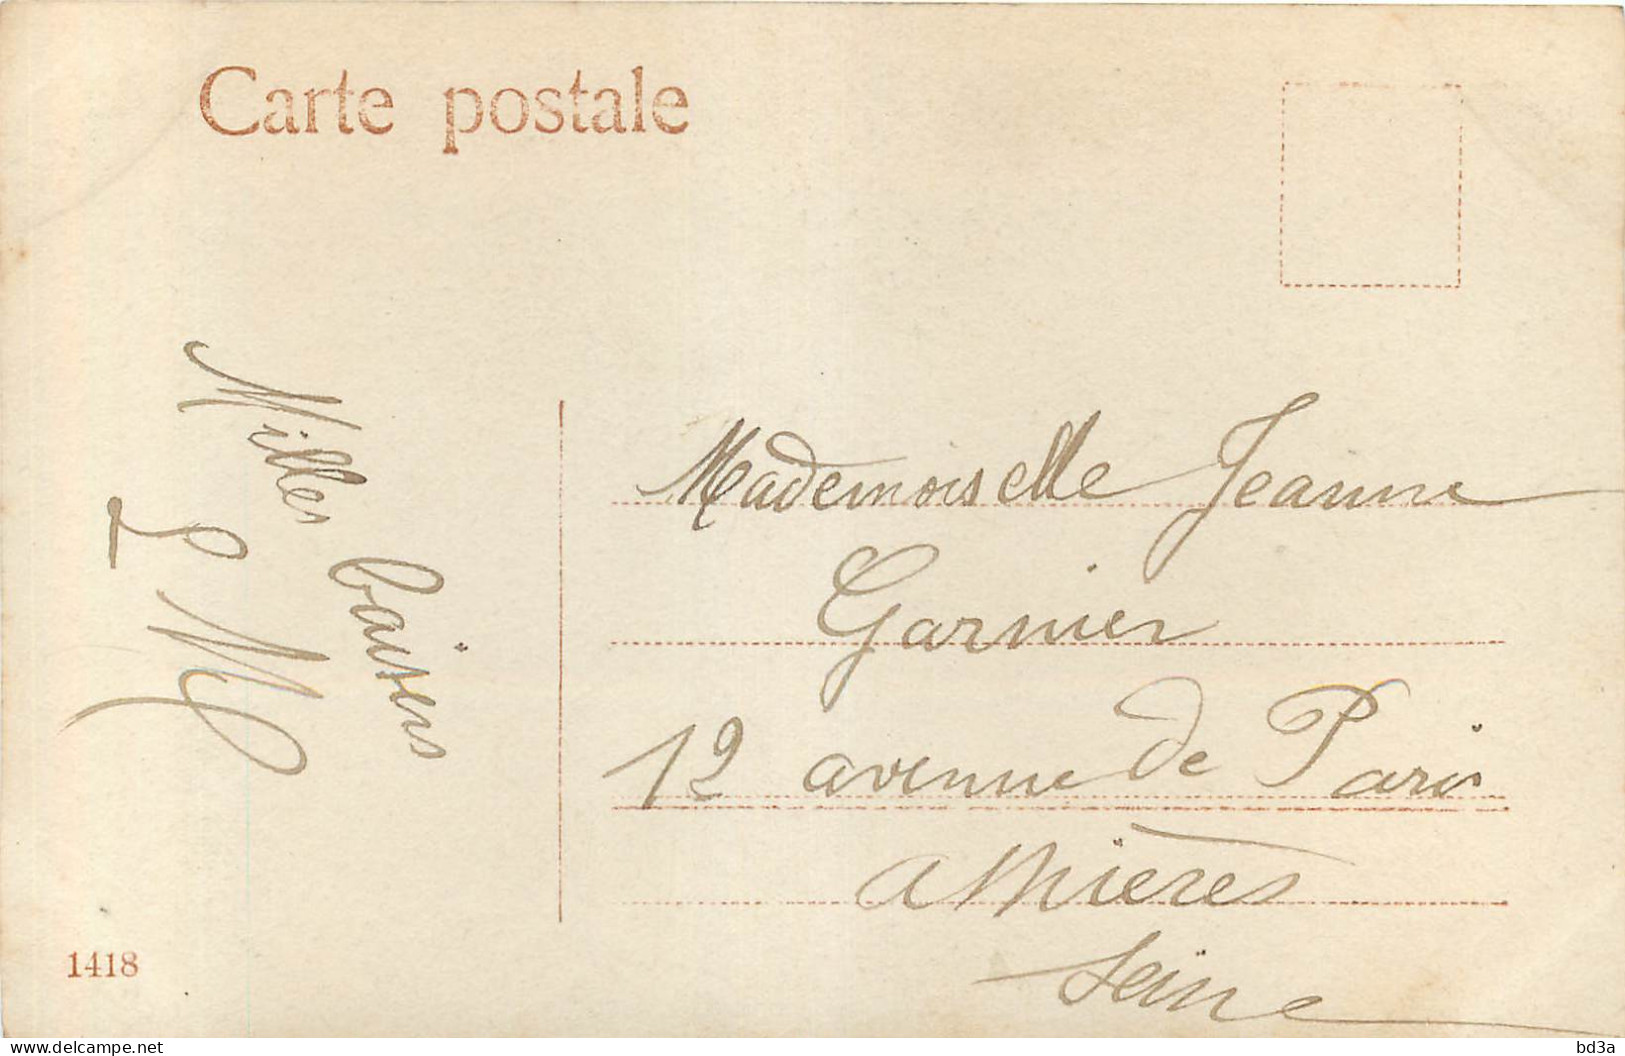 Carte postale
Milles baisers
L M
Mademoiselle Jeanne
Garnier
12 avenue de Paris
Asnières
Seine
1418
www.delcampe.net
bd3a